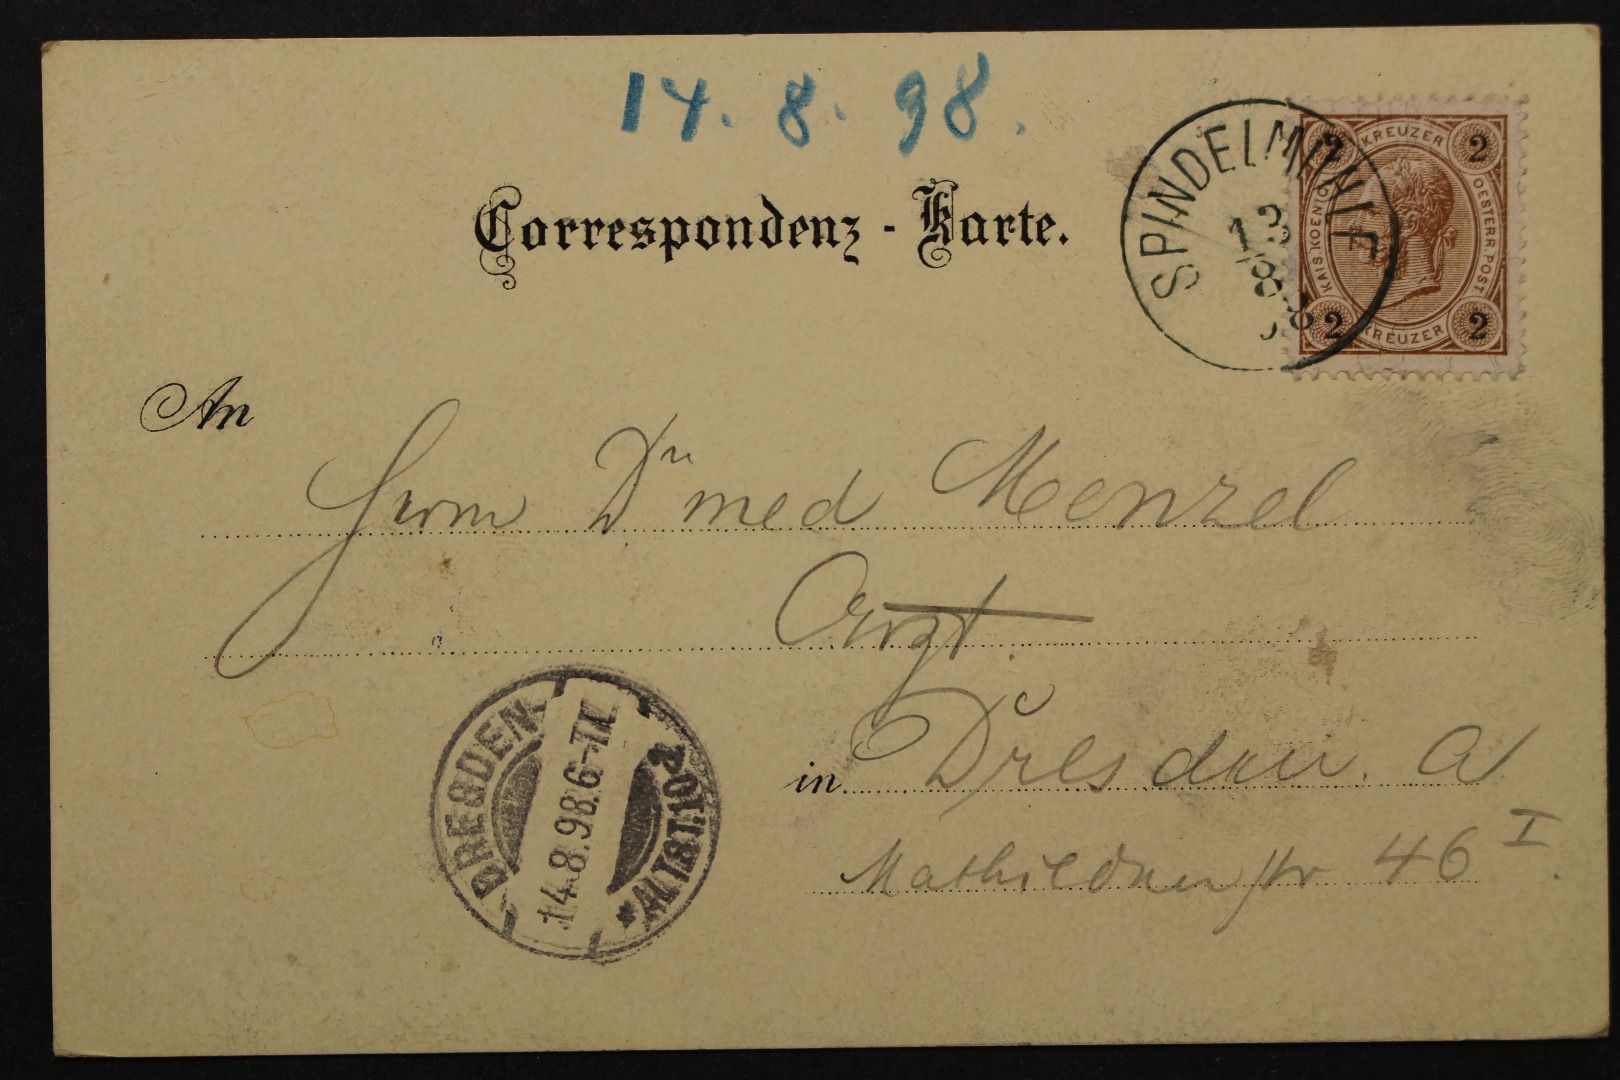 14. 8. 98.
Correspondenz-Karte.
SPINDELMÜHLE
13
8
98
2 KREUZER 2
KAIS. KOENIGL. OESTERR. POST.
2 KREUZER 2
An
Herrn Dr med Menzel
Arzt.
in Dresden. A
Mathildenstr 46 I.
DRESDEN
14.8.98.6-7N.
*ALTST.10a